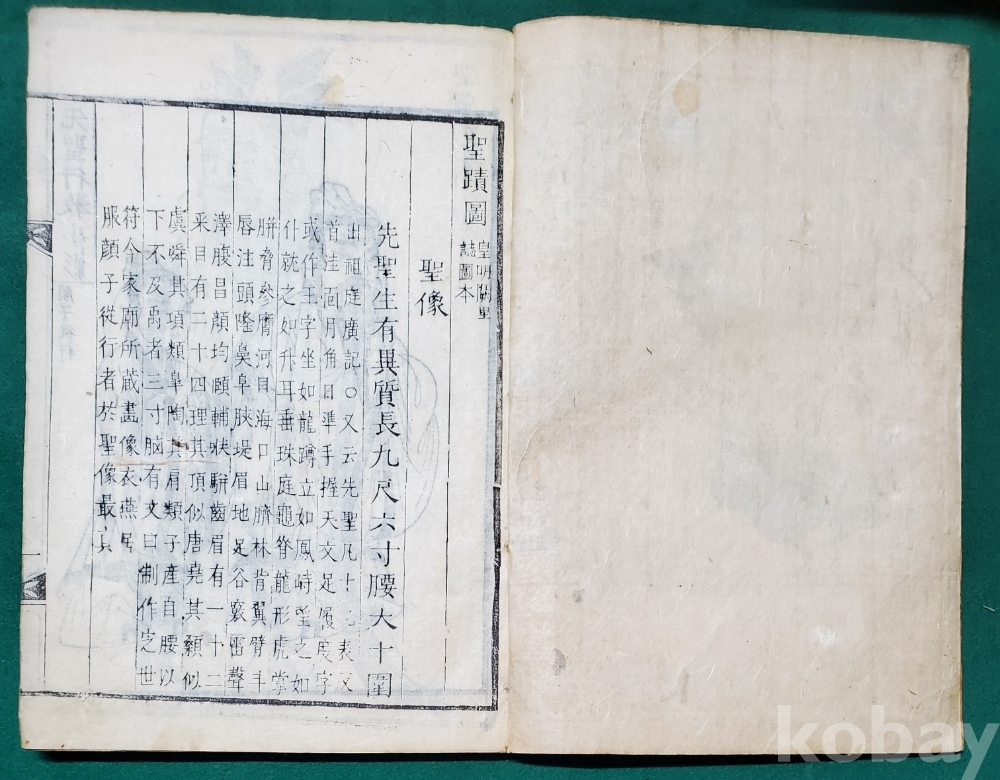 聖蹟圖
皇明闕里
誌圖本
聖像
先聖生有異質長九尺六寸腰大十圍
出祖庭廣記○又云先聖凡十九表文
首洼面月角日準手握天文足履度字
或作王字坐如龍蹲立如鳳峙望之如
仆就之如升耳垂珠庭龜脊龍形虎掌
胼脅參膺河目海口山臍林背翼臂斗
唇注頭隆鼻阜陜堤眉地足谷竅雷聲
澤腹昌顔均頤輔喉騈齒眉有一十二
采目有二十四理其頂似唐堯其顙似
虞舜其項類臯陶其肩類子產自腰以
下不及禹者三寸腦有文曰制作定世
符今家廟所蔵畫像衣燕居
服顔子從行者於聖像最真
先聖行教小影
顔子從行
一
kobay